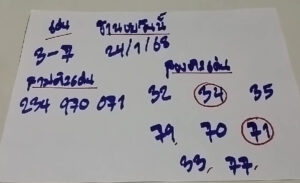 เด่น ฐานเปรันนี้
3-7 24/1/68
สามตัวเด่น สองตัวเด่น
234 970 071 32 34 35
79 70 71
33, 77,